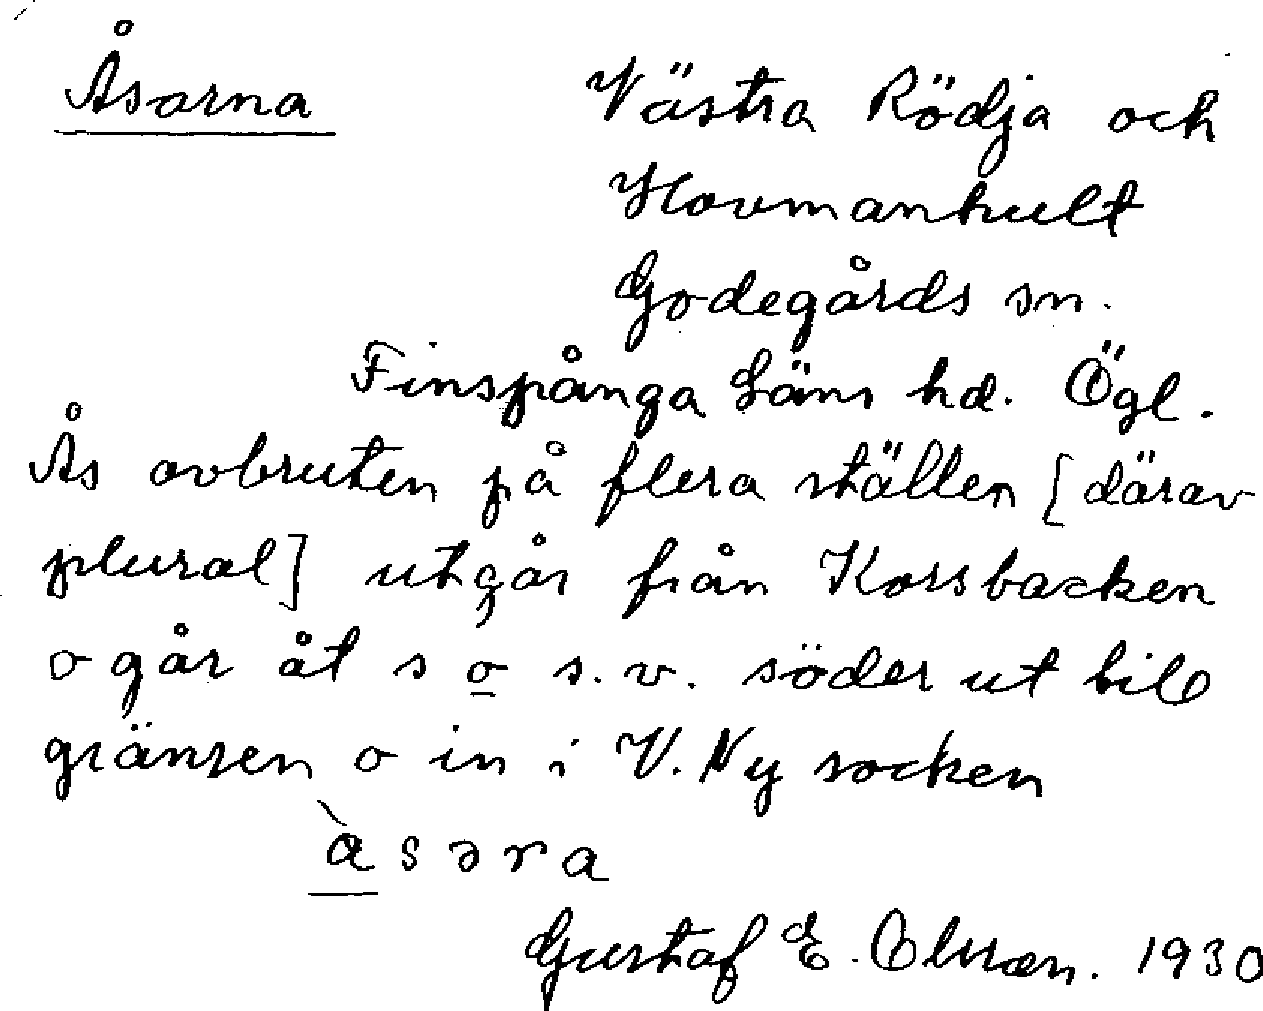 Åsarna
Västra Rödja och
Hovmanhult
Godegårds sn.
Finspånga läns hd. Ögl.
Ås avbruten på flera ställen [därav
plural] utgår från Korsbacken
o går åt s o s.v. söder ut till
gränsen o in i V. Ny socken
àsəra
Gustaf E. Olsson. 1930